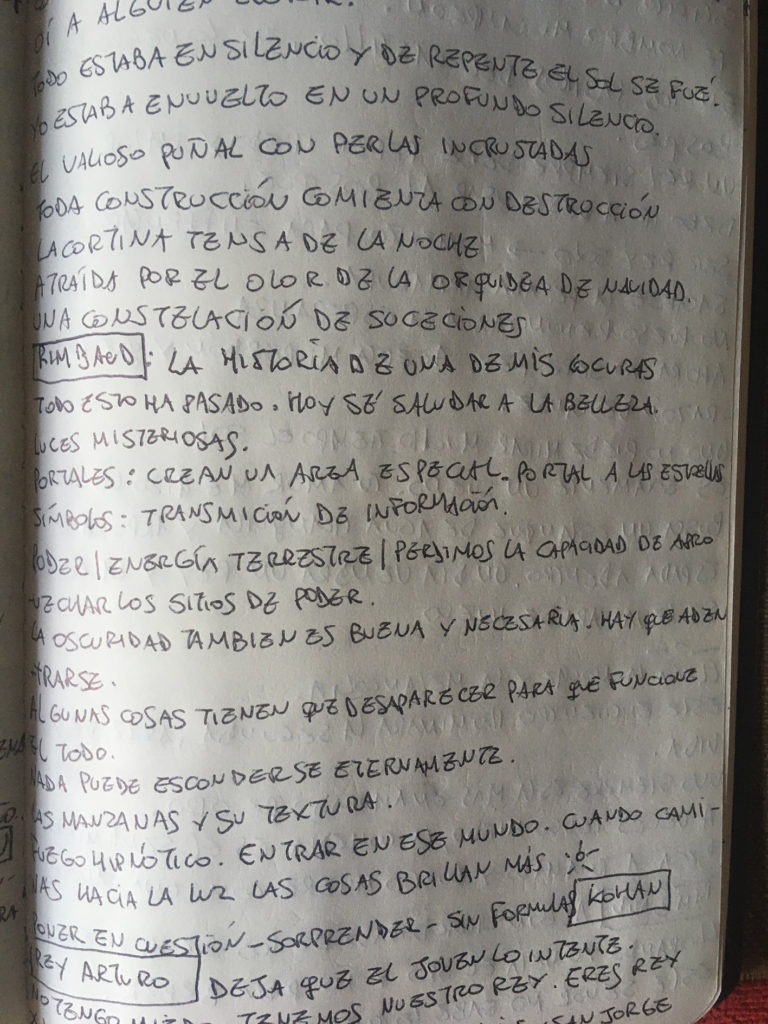 OÍ A ALGUIEN
TODO ESTABA EN SILENCIO Y DE REPENTE EL SOL SE FUÉ.
YO ESTABA ENVUELTO EN UN PROFUNDO SILENCIO.
EL VALIOSO PUÑAL CON PERLAS INCRUSTADAS
TODA CONSTRUCCIÓN COMIENZA CON DESTRUCCIÓN
LA CORTINA TENSA DE LA NOCHE
ATRAÍDA POR EL OLOR DE LA ORQUIDEA DE NAVIDAD.
UNA CONSTELACIÓN DE SUCECIONES
RIMBAUD: LA HISTORIA DE UNA DE MIS LOCURAS
TODO ESTO HA PASADO. HOY SÉ SALUDAR A LA BELLEZA.
LUCES MISTERIOSAS.
PORTALES: CREAN UN AREA ESPECIAL. PORTAL A LAS ESTRELLAS
SÍMBOLOS: TRANSMICIÓN DE INFORMACIÓN.
PODER | ENERGÍA TERRESTRE | PERDIMOS LA CAPACIDAD DE APRO
-VECHAR LOS SITIOS DE PODER.
LA OSCURIDAD TAMBIEN ES BUENA Y NECESARIA. HAY QUE ADEN
-TRARSE.
ALGUNAS COSAS TIENEN QUE DESAPARECER PARA QUE FUNCIONE
EL TODO.
NADA PUEDE ESCONDERSE ETERNAMENTE.
LAS MANZANAS Y SU TEXTURA.
FUEGO HIPNÓTICO. ENTRAR EN ESE MUNDO. CUANDO CAMI-
NAS HACIA LA LUZ LAS COSAS BRILLAN MÁS
PONER EN CUESTIÓN - SORPRENDER - SIN FORMULAS KOHAN
REY ARTURO DEJA QUE EL JOVEN LO INTENTE.
NO TENGO MIEDO. TENEMOS NUESTRO REY. ERES REY
SAN JORGE